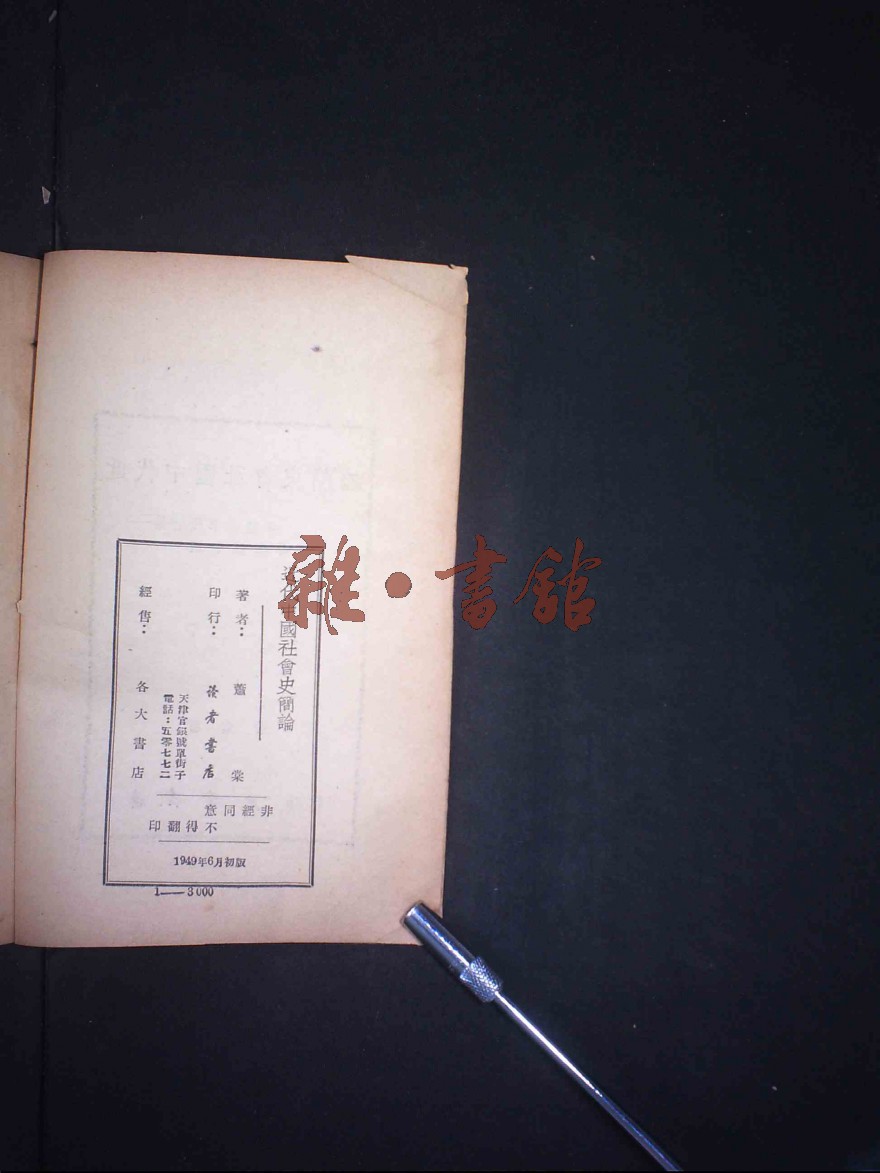 近代中國社會史簡論
著者：蕭棠
印行：讀者書店
天津官銀號單街子
電話：五零七七二
經售：各大書店
非經同意
不得翻印
1949年6月初版
1——3000
雜·書館